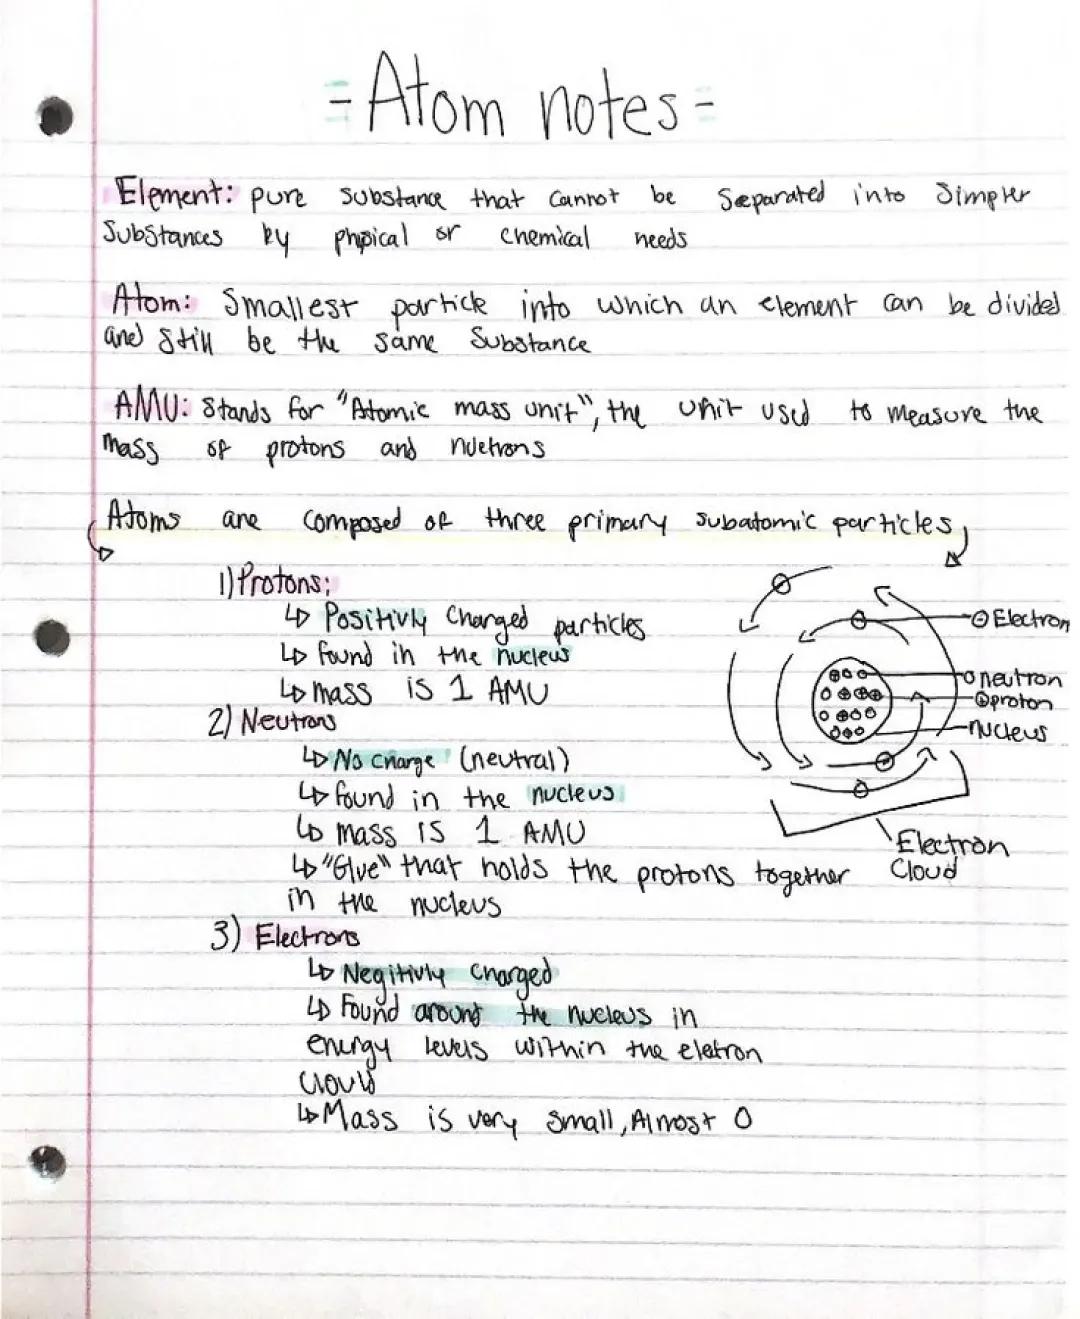 = Atom notes =
Element: pure substance that cannot be separated into simpler
substances by physical or chemical needs
Atom: Smallest particle into which an element can be divided
and still be the same substance
AMU: Stands for "Atomic mass unit", the unit used to measure the
mass of protons and nuetrons
Atoms are composed of three primary subatomic particles
1) Protons:
↳ Positivly Charged particles
↳ found in the nucleus
↳ mass is 1 AMU
2) Neutrons
↳ No charge (neutral)
↳ found in the nucleus
↳ mass is 1 AMU
↳ "Glue" that holds the protons together
in the nucleus
3) Electrons
↳ Negitivly Charged
↳ Found around the nucleus in
energy levels within the eletron
clould
↳ Mass is very small, Almost 0
⊖ Electron
o neutron
⊕ proton
nucleus
Electron
Cloud